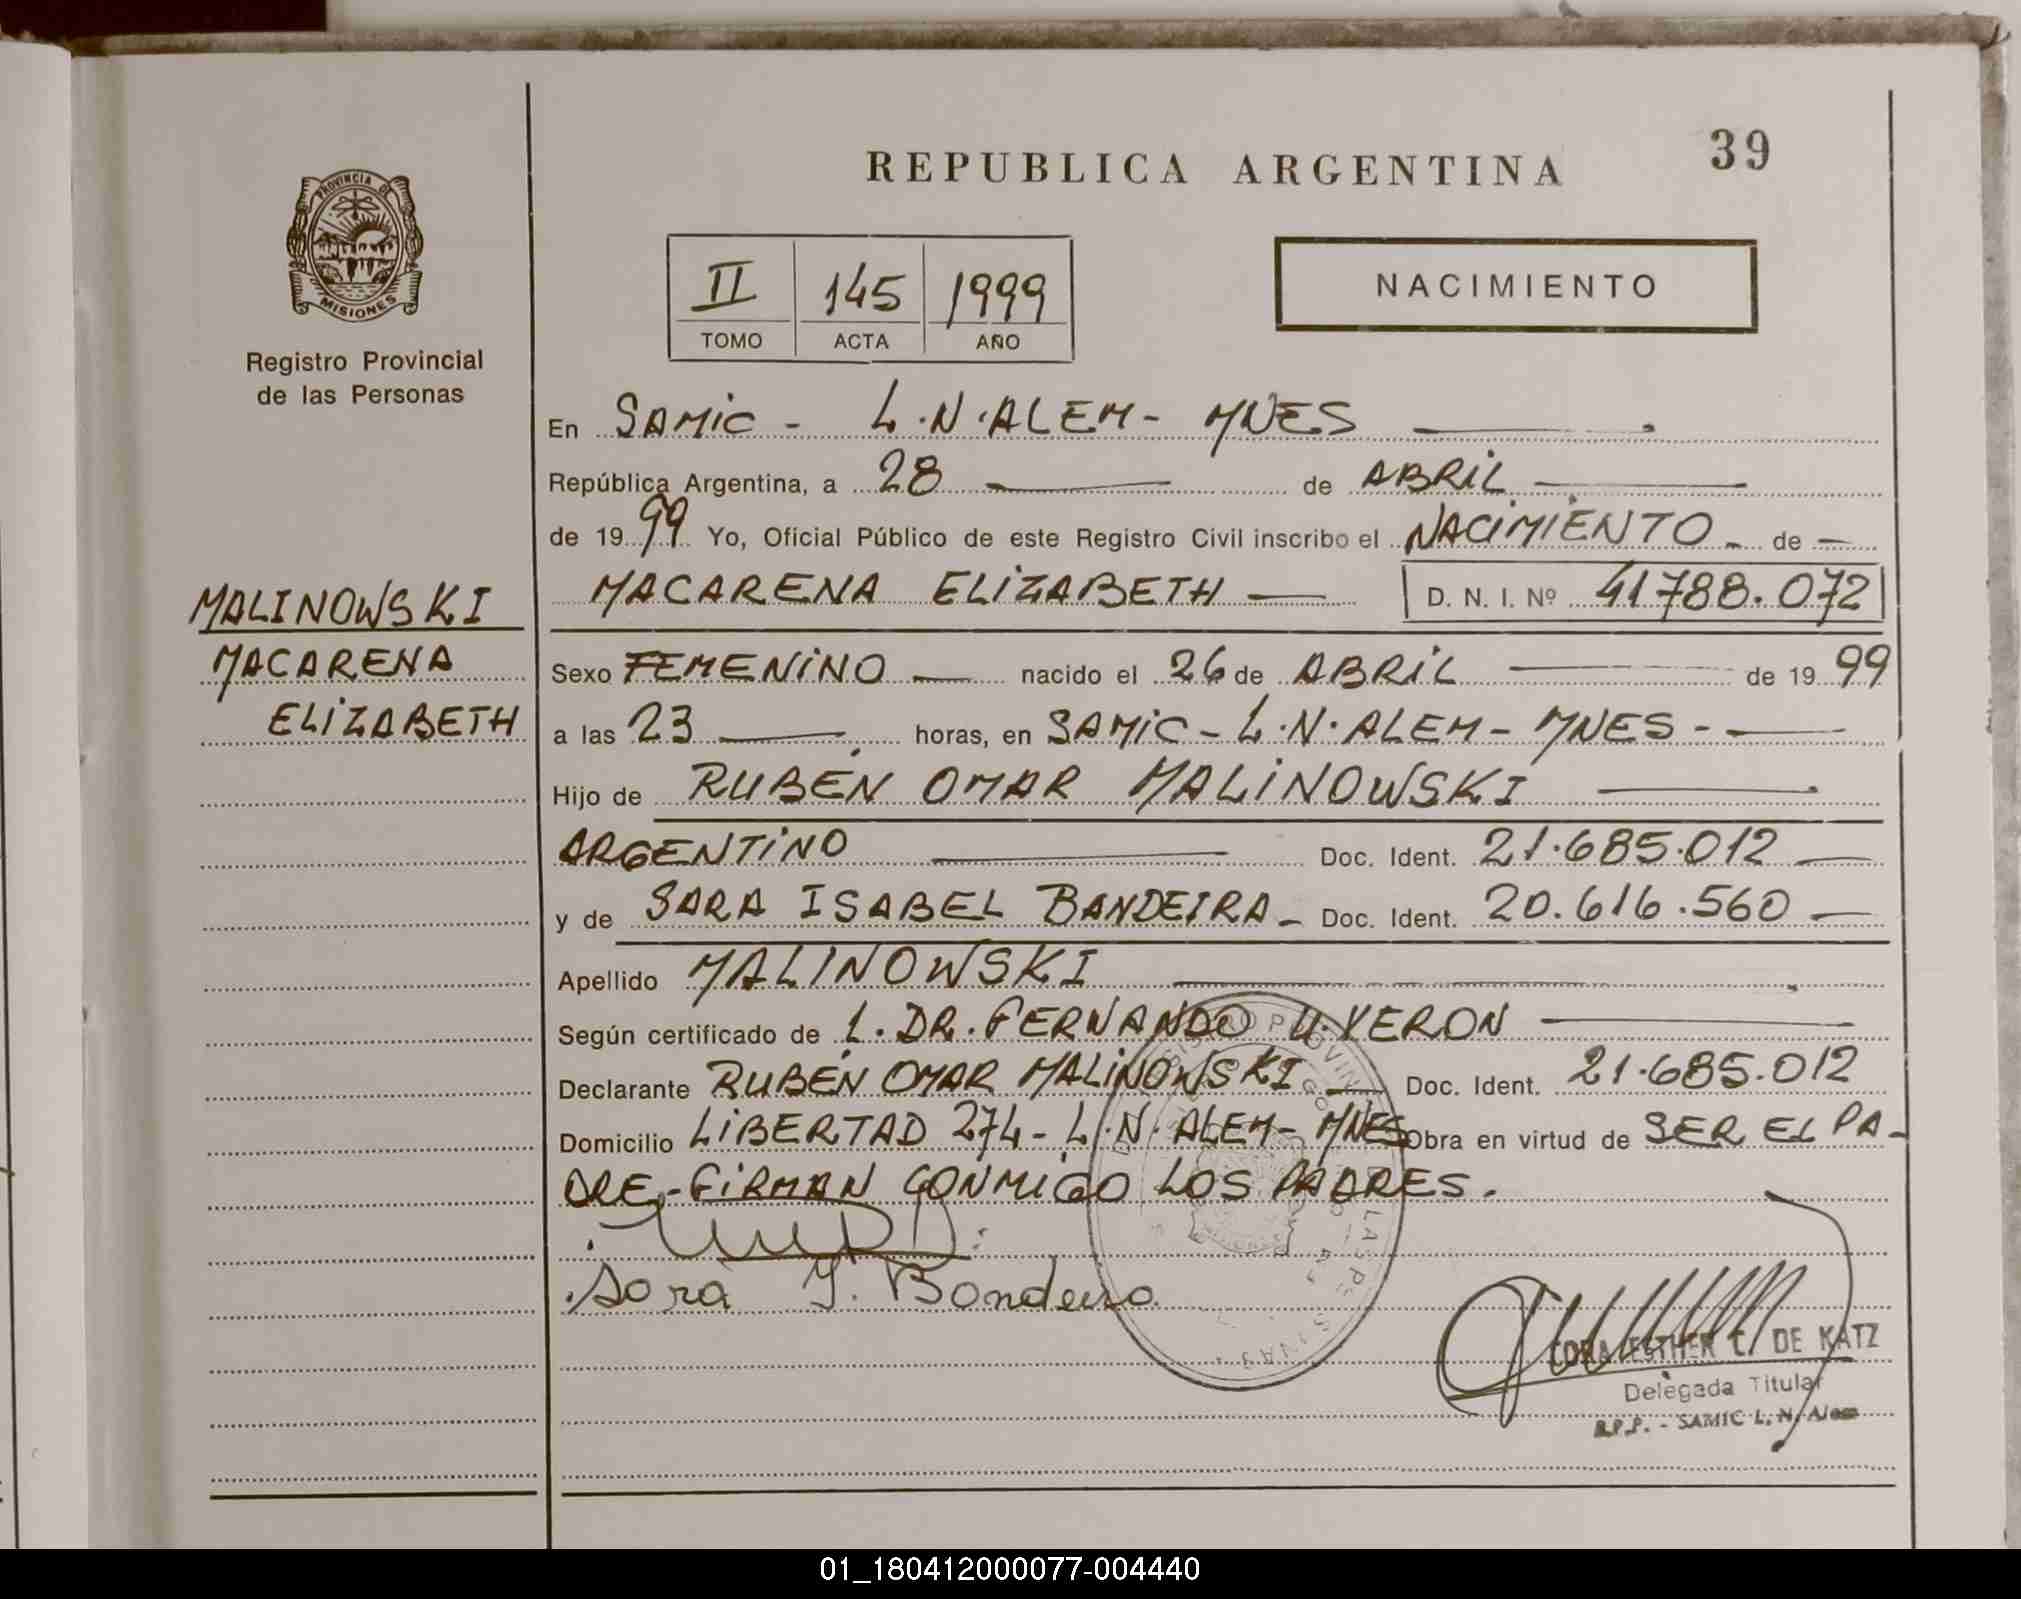 REPUBLICA ARGENTINA
39
PROVINCIA DE
MISIONES
Registro Provincial
de las Personas
II 145 1999
TOMO ACTA AÑO
NACIMIENTO
En SAMIC - L.N.ALEM - MNES
República Argentina, a 28 de ABRIL
de 1999 Yo, Oficial Público de este Registro Civil inscribo el NACIMIENTO de
MACARENA ELIZABETH D. N. I. Nº 41788.072
MALINOWSKI
MACARENA
ELIZABETH
Sexo FEMENINO nacido el 26 de ABRIL de 1999
a las 23 horas, en SAMIC - L.N.ALEM - MNES -
Hijo de RUBÉN OMAR MALINOWSKI
ARGENTINO Doc. Ident. 21.685.012
y de SARA ISABEL BANDEIRA - Doc. Ident. 20.616.560
Apellido MALINOWSKI
Según certificado de L. DR. FERNANDO U. VERON
Declarante RUBÉN OMAR MALINOWSKI Doc. Ident. 21.685.012
Domicilio LIBERTAD 274 - L.N.ALEM - MNES Obra en virtud de SER EL PA-
DRE - FIRMAN CONMIGO LOS PADRES.
Sara I. Bandeira
ESTHER C. DE KATZ
Delegada Titular
R.P.P. - SAMIC L. N. Alem
01_180412000077-004440